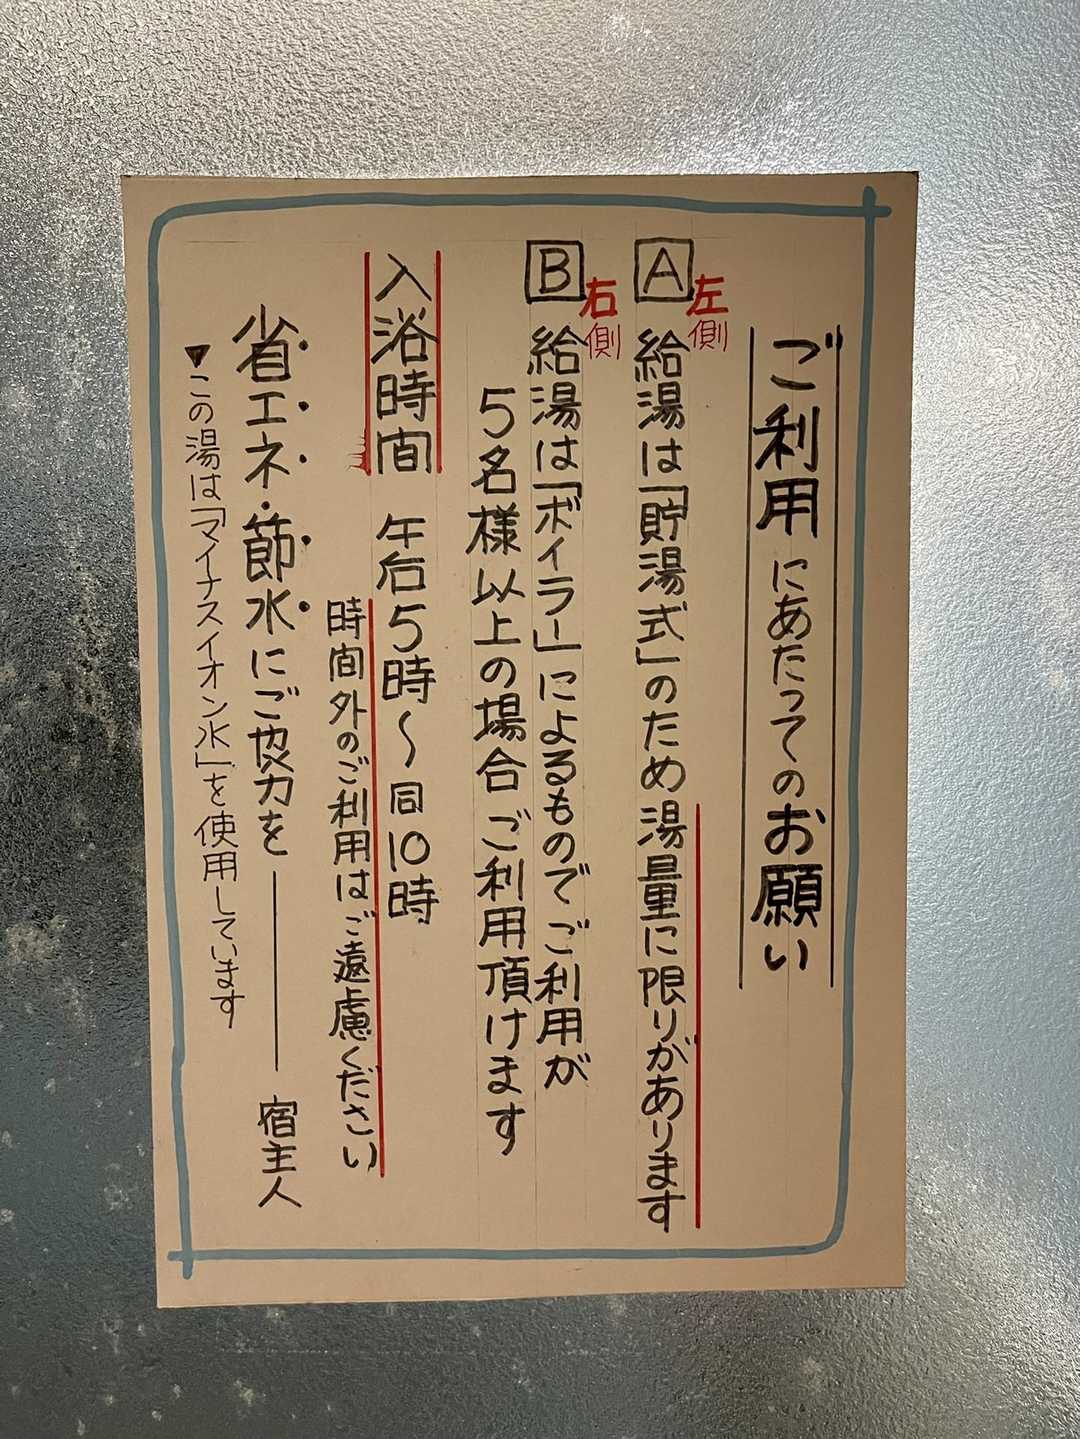 ご利用にあたってのお願い
左側
A 給湯は「貯湯式」のため湯量に限りがあります
右側
B 給湯は「ボイラー」によるものでご利用が
5名様以上の場合ご利用頂けます
入浴時間 午后5時〜同10時
時間外のご利用はご遠慮ください
省エネ・節水にご協力を――宿主人
▼この湯は「マイナスイオン水」を使用しています